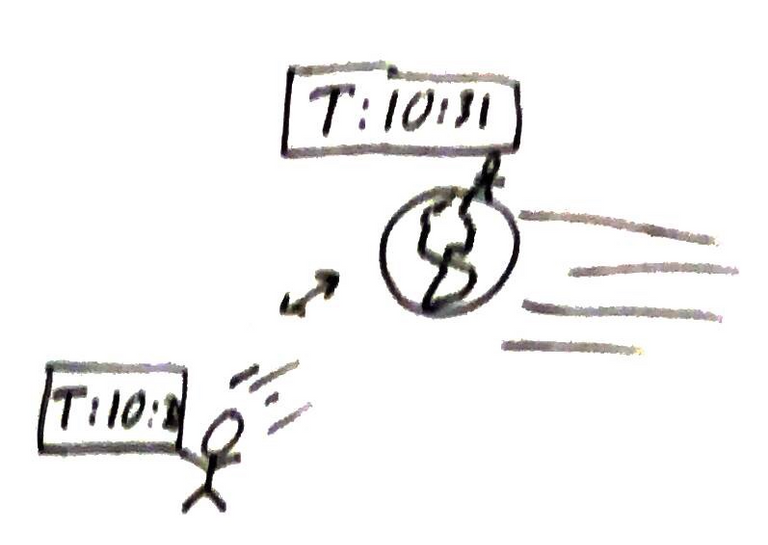 T:10:31
T:10: